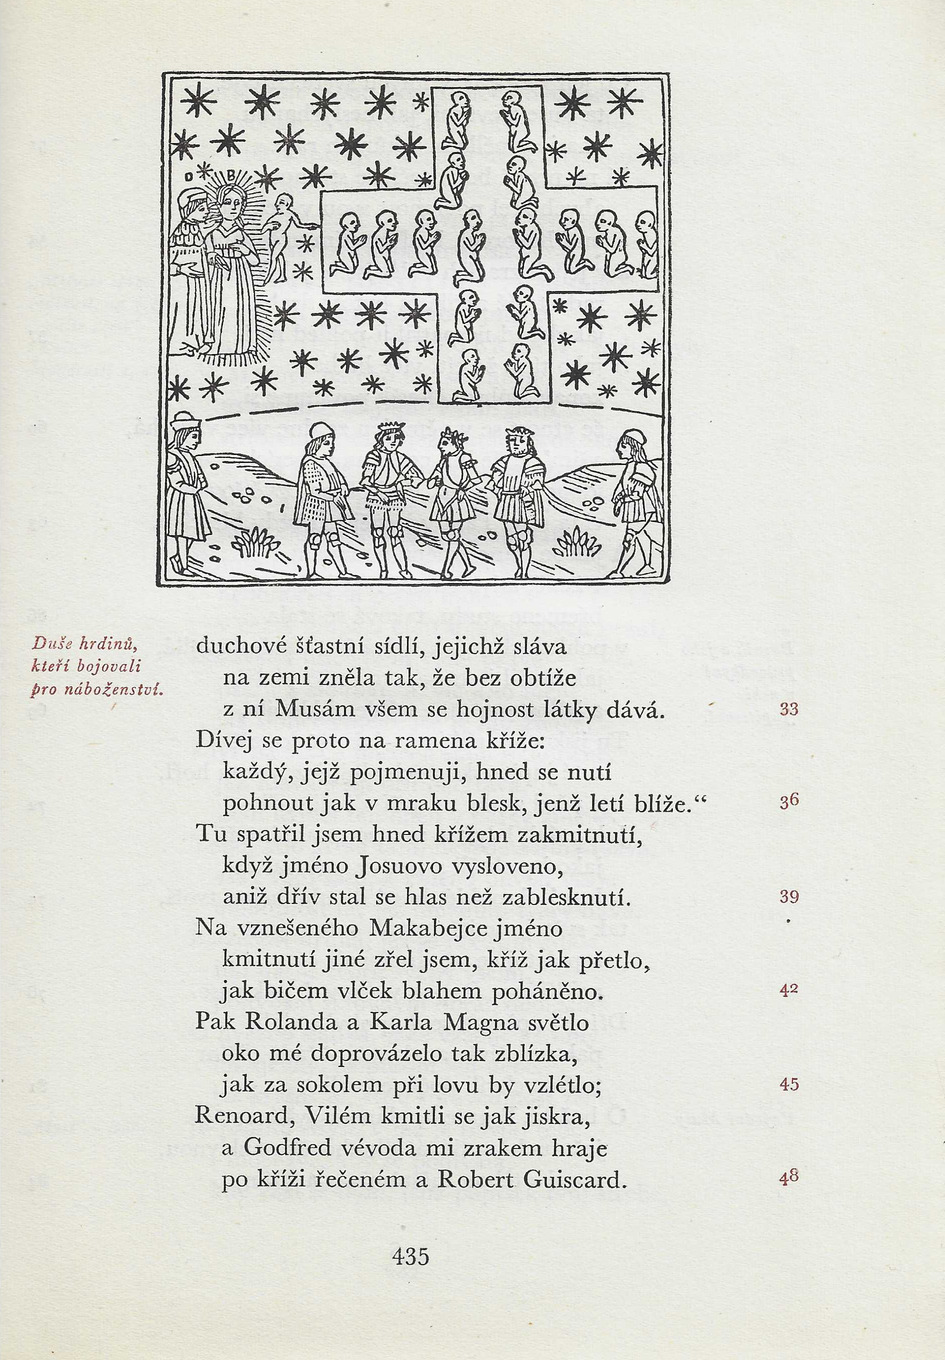 D B
Duše hrdinů,
kteří bojovali
pro náboženství.
duchové šťastní sídlí, jejichž sláva
na zemi zněla tak, že bez obtíže
z ní Musám všem se hojnost látky dává. 33
Dívej se proto na ramena kříže:
každý, jejž pojmenuji, hned se nutí
pohnout jak v mraku blesk, jenž letí blíže.“ 36
Tu spatřil jsem hned křížem zakmitnutí,
když jméno Josuovo vysloveno,
aniž dřív stal se hlas než zablesknutí. 39
Na vznešeného Makabejce jméno
kmitnutí jiné zřel jsem, kříž jak přetlo,
jak bičem vlček blahem poháněno. 42
Pak Rolanda a Karla Magna světlo
oko mé doprovázelo tak zblízka,
jak za sokolem při lovu by vzlétlo; 45
Renoard, Vilém kmitli se jak jiskra,
a Godfred vévoda mi zrakem hraje
po kříži řečeném a Robert Guiscard. 48
435